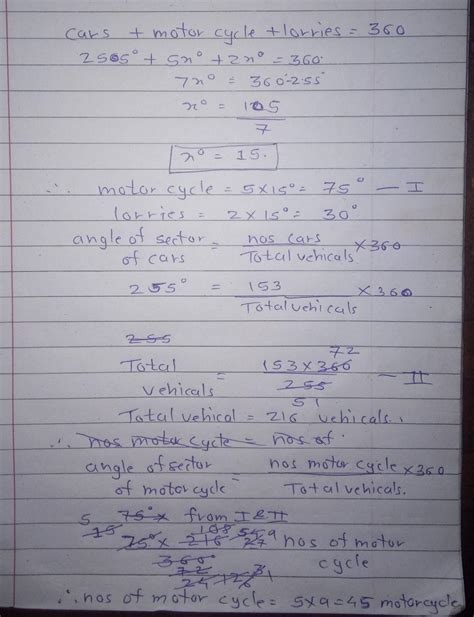 cars + motor cycle + lorries = 360
255° + 5x° + 2x° = 360
7x° = 360-255
x° = 105
7
x° = 15.
∴ motor cycle = 5×15° = 75° — I
lorries = 2×15° = 30°
angle of sector = nos cars ×360
of cars Total vehicals
255° = 153 ×360
Total vehicals
255
72
Total = 153×360 — II
vehicals 255
51
Total vehical = 216 vehicals.
∴ nos motor cycle = nos of
angle of sector = nos motor cycle ×360
of motor cycle Total vehicals.
5 75°× from I & II
15 75°× 216 nos of motor
360° cycle
72
∴ nos of motor cycle = 5×9=45 motorcycle